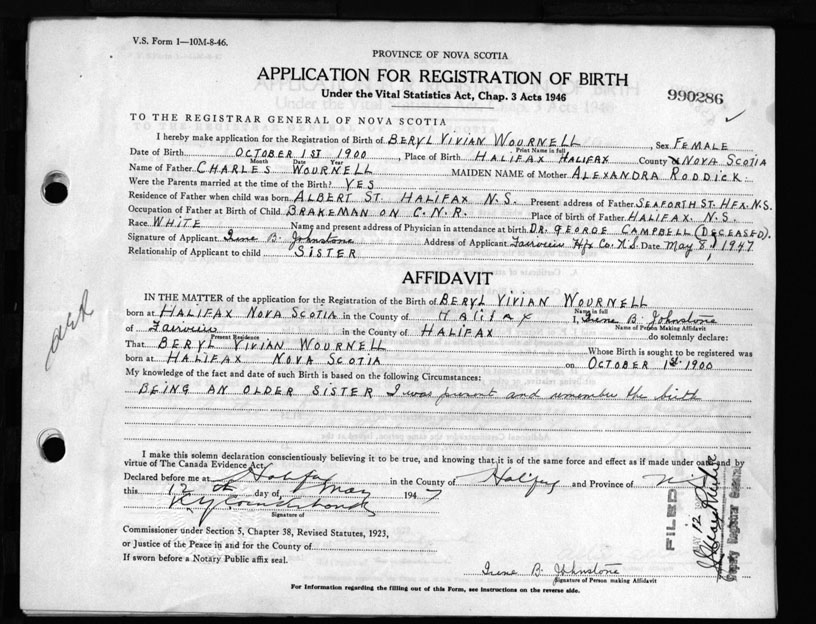 V.S. Form 1—10M-8-46.
PROVINCE OF NOVA SCOTIA
APPLICATION FOR REGISTRATION OF BIRTH
Under the Vital Statistics Act, Chap. 3 Acts 1946
990286
TO THE REGISTRAR GENERAL OF NOVA SCOTIA
I hereby make application for the Registration of Birth of BERYL VIVIAN WOURNELL, Sex FEMALE
Print Name in full
Date of Birth OCTOBER 1ST 1900, Place of Birth HALIFAX HALIFAX County NOVA SCOTIA
Month Date Year
Name of Father CHARLES WOURNELL MAIDEN NAME of Mother ALEXANDRA RODDICK.
Were the Parents married at the time of the Birth? YES
Residence of Father when child was born ALBERT ST. HALIFAX N.S. Present address of Father SEAFORTH ST. HFX. N.S.
Occupation of Father at Birth of Child BRAKEMAN ON C.N.R. Place of birth of Father HALIFAX. N.S.
Race WHITE Name and present address of Physician in attendance at birth DR. GEORGE CAMPBELL (DECEASED).
Signature of Applicant Irene B. Johnstone Address of Applicant Fairview Hfx Co. N.S. Date May 8, 1947.
Relationship of Applicant to child SISTER
AFFIDAVIT
IN THE MATTER of the application for the Registration of the Birth of BERYL VIVIAN WOURNELL
Name in full
born at HALIFAX NOVA SCOTIA in the County of Halifax I, Irene B. Johnstone
Name of Person Making Affidavit
of Fairview in the County of HALIFAX do solemnly declare:
Present Residence
That BERYL VIVIAN WOURNELL Whose Birth is sought to be registered was
born at HALIFAX NOVA SCOTIA on OCTOBER 1st. 1900
My knowledge of the fact and date of such Birth is based on the following Circumstances:
BEING AN OLDER SISTER I was present and remember the birth
I make this solemn declaration conscientiously believing it to be true, and knowing it is of the same force and effect as if made under oath and by
virtue of The Canada Evidence Act.
Declared before me at Halifax in the County of Halifax and Province of N.S.
this 12 day of May 1947
Signature of
Commissioner under Section 5, Chapter 38, Revised Statutes, 1923,
or Justice of the Peace in and for the County of
If sworn before a Notary Public affix seal.
Irene B. Johnstone
Signature of Person making Affidavit
For Information regarding the filling out of this Form, see instructions on the reverse side.
FILED
MAY 12
Deputy Registrar General